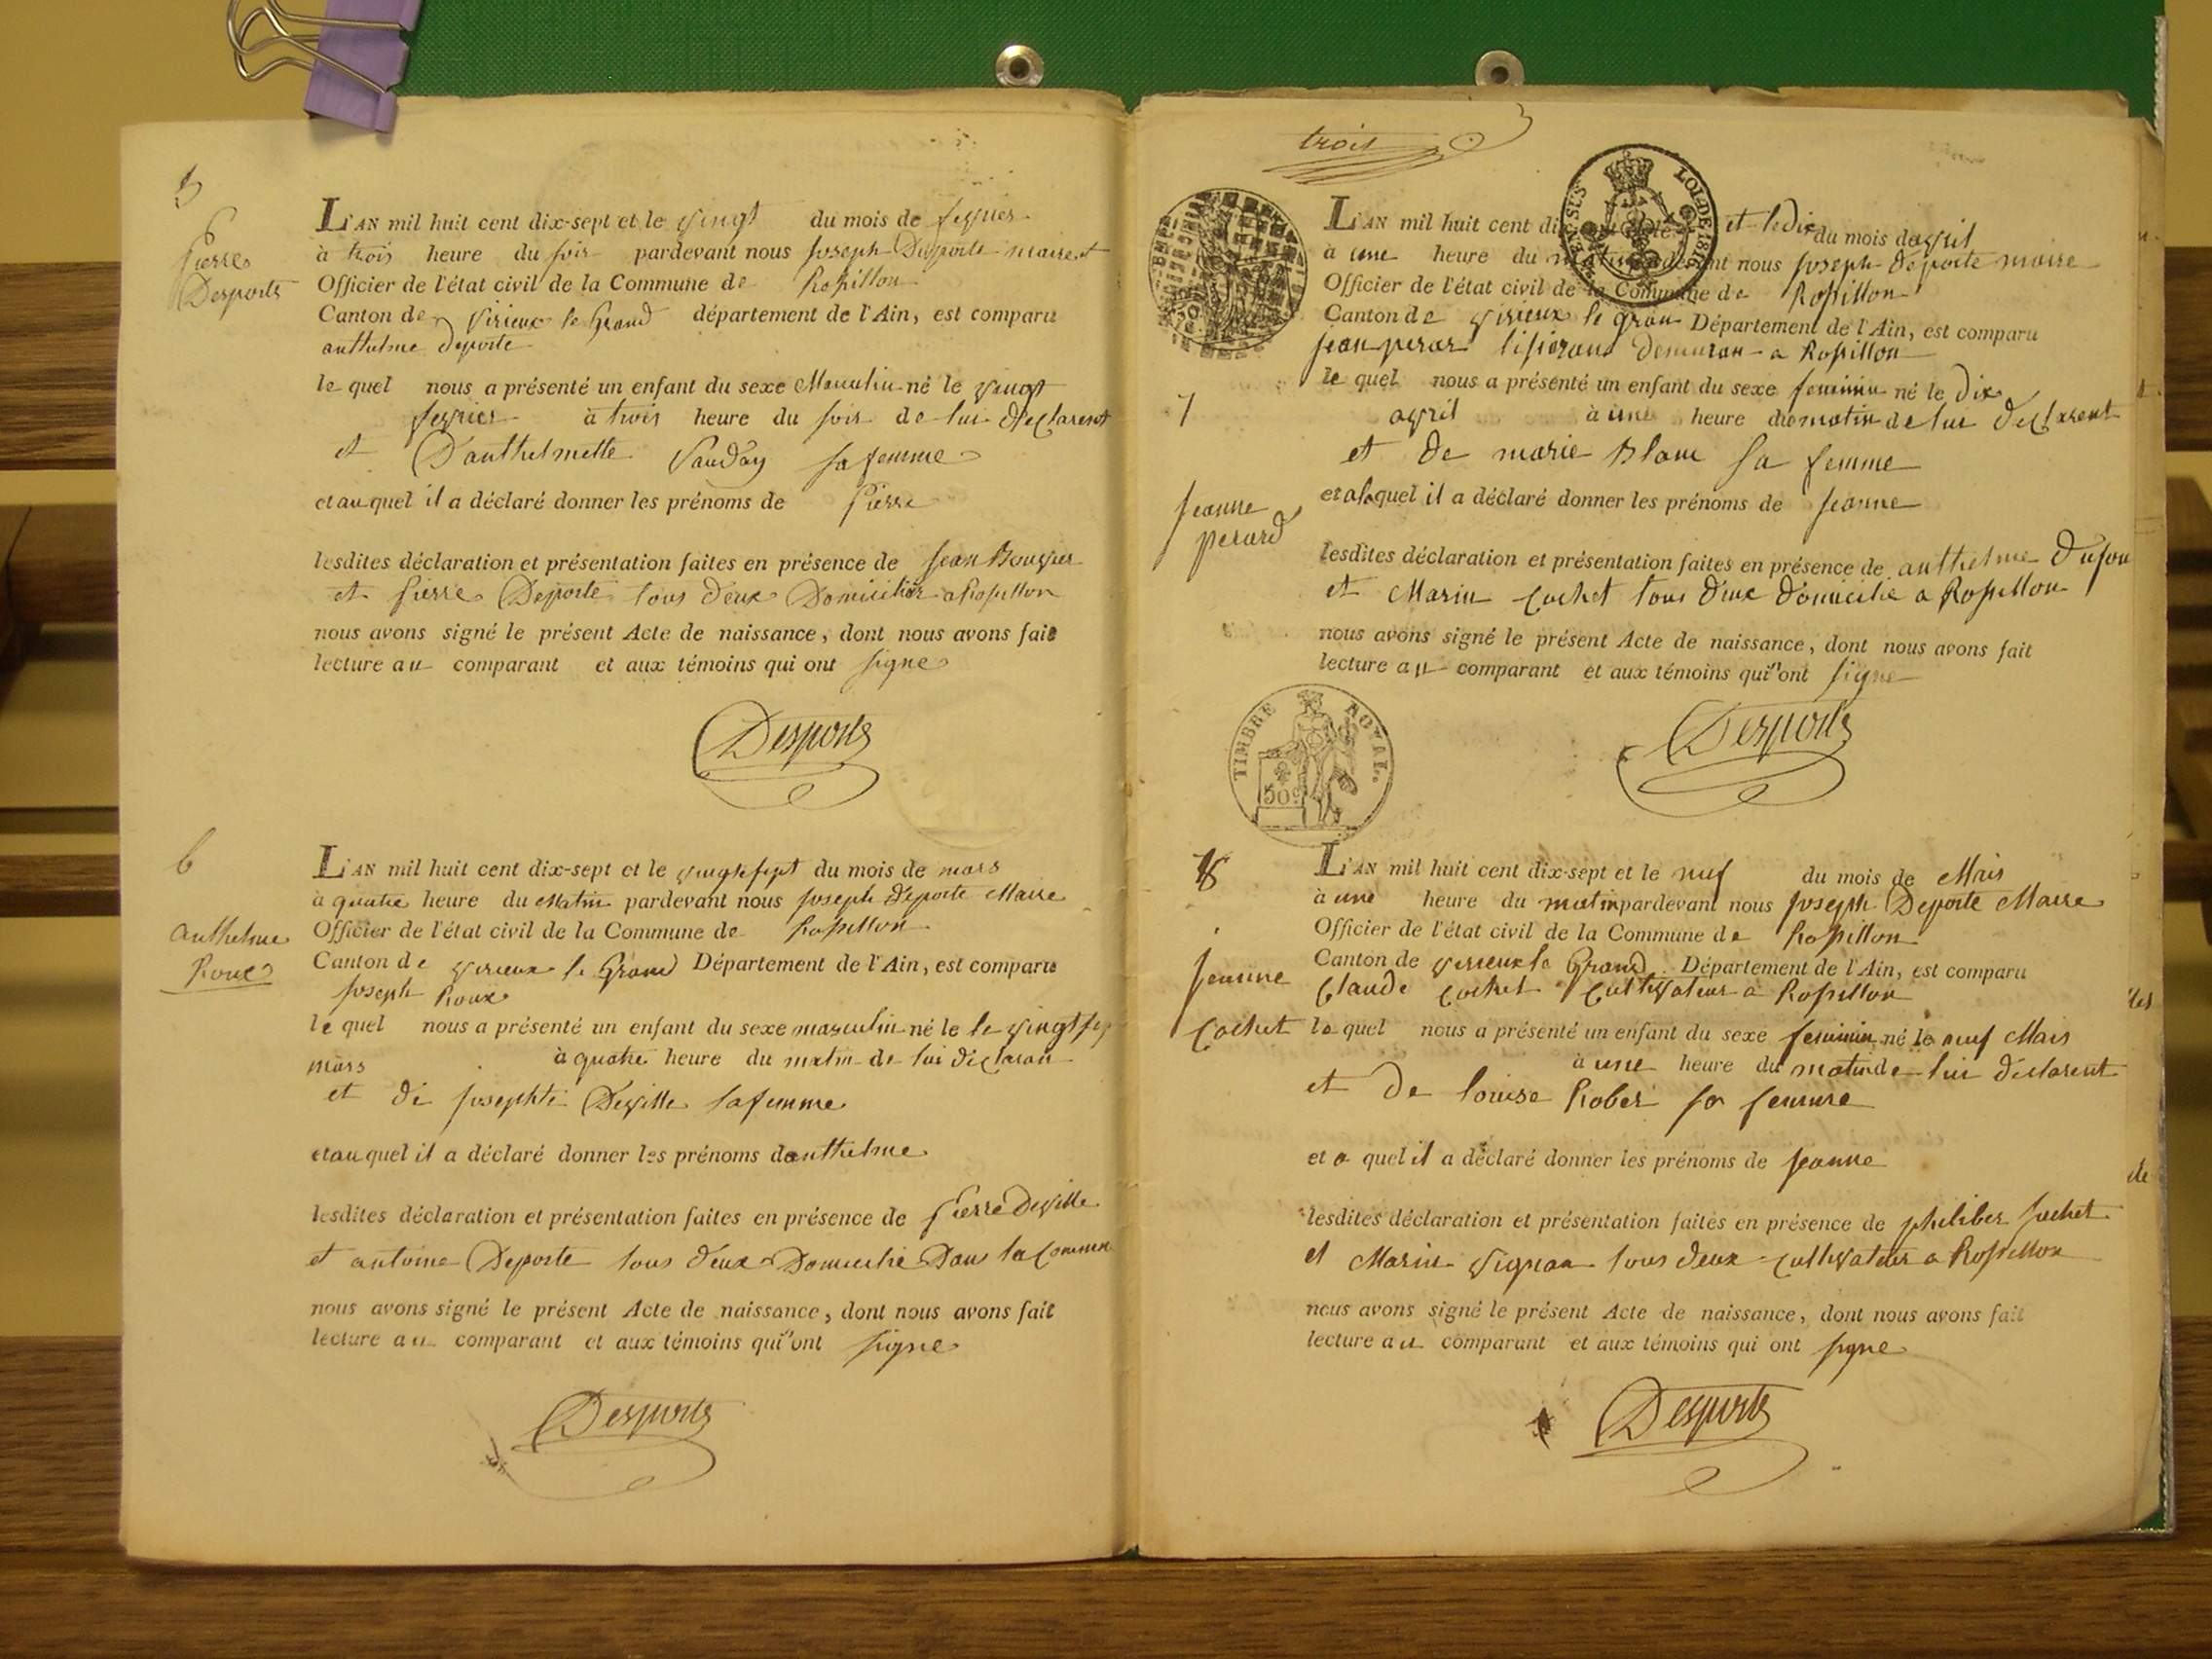 5
Pierre
Desports
L'AN mil huit cent dix-sept et le vingt du mois de fevrier
à trois heure du soir pardevant nous joseph Deporte maire et
Officier de l'état civil de la Commune de Rossillon
Canton de virieux le Grand département de l'Ain, est comparu
anthelme deporte
le quel nous a présenté un enfant du sexe Masculin né le vingt
fevrier à trois heure du soir de lui declarent
et D'anthelmette sa femme
et au quel il a déclaré donner les prénoms de Pierre
lesdites déclaration et présentation faites en présence de jean Bouvier
et Pierre Deporte tous deux Domicilier a Rossillon
nous avons signé le présent Acte de naissance, dont nous avons fait
lecture au comparant et aux témoins qui ont signe
Desports
6
anthelme
Roux
L'AN mil huit cent dix-sept et le vingt sept du mois de mars
à quatre heure du Matin pardevant nous joseph deporte Maire
Officier de l'état civil de la Commune de Rossillon
Canton de virieux le Grand Département de l'Ain, est comparu
joseph Roux
le quel nous a présenté un enfant du sexe masculin né le le vingt sep
mars à quatre heure du matin de lui declaran
et de josephte Deville sa femme
et au quel il a déclaré donner les prénoms d anthelme
lesdites déclaration et présentation faites en présence de Pierre Deville
et antoine Deporte tous deux Domicilié Dans la Commun
nous avons signé le présent Acte de naissance, dont nous avons fait
lecture au comparant et aux témoins qui ont signe
Desports
trois
7
jeanne
perard
L'AN mil huit cent dix et le dix du mois d avril
à une heure du nous joseph deporte maire
Officier de l'état civil de la Commune de Rossillon
Canton de virieux le gran Département de l'Ain, est comparu
jean perar a Rossillon
le quel nous a présenté un enfant du sexe feminin né le dix
avril à une heure du matin de lui declarent
et de marie Blanc sa femme
et a la quel il a déclaré donner les prénoms de jeanne
lesdites déclaration et présentation faites en présence de anthelme Dufou
et Marin cochet tous deux domicilie a Rossillon
nous avons signé le présent Acte de naissance, dont nous avons fait
lecture au comparant et aux témoins qui ont signe
Desports
TIMBRE ROYAL.
50c
8
jeanne
Cochet
L'AN mil huit cent dix-sept et le neuf du mois de Mais
à une heure du matin pardevant nous joseph Deporte Maire
Officier de l'état civil de la Commune de Rossillon
Canton de virieux le Grand Département de l'Ain, est comparu
Claude cochet cultivateur a Rossillon
le quel nous a présenté un enfant du sexe feminin né le neuf Mais
à une heure du matin de lui declarent
et de louise Rober sa femme
et a quel il a déclaré donner les prénoms de jeanne
lesdites déclaration et présentation faites en présence de philiber
et Marin tous deux cultivateur a Rossillon
nous avons signé le présent Acte de naissance, dont nous avons fait
lecture au comparant et aux témoins qui ont signe
Desports